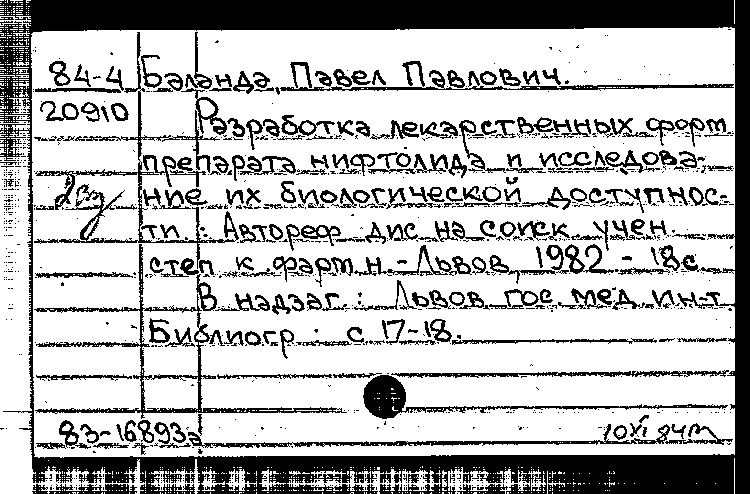 84-4 Баланда, Павел Павлович.
20910 Разработка лекарственных форм
препарата нифтолида и исследова-
2 экз ние их биологической доступнос-
ти : Автореф дис на соиск учен.
степ к фарм н. - Львов, 1982 - 18 с
В надзаг. : Львов гос. мед ин-т
Библиогр : с 17-18.
83-16893а 10 XI 84